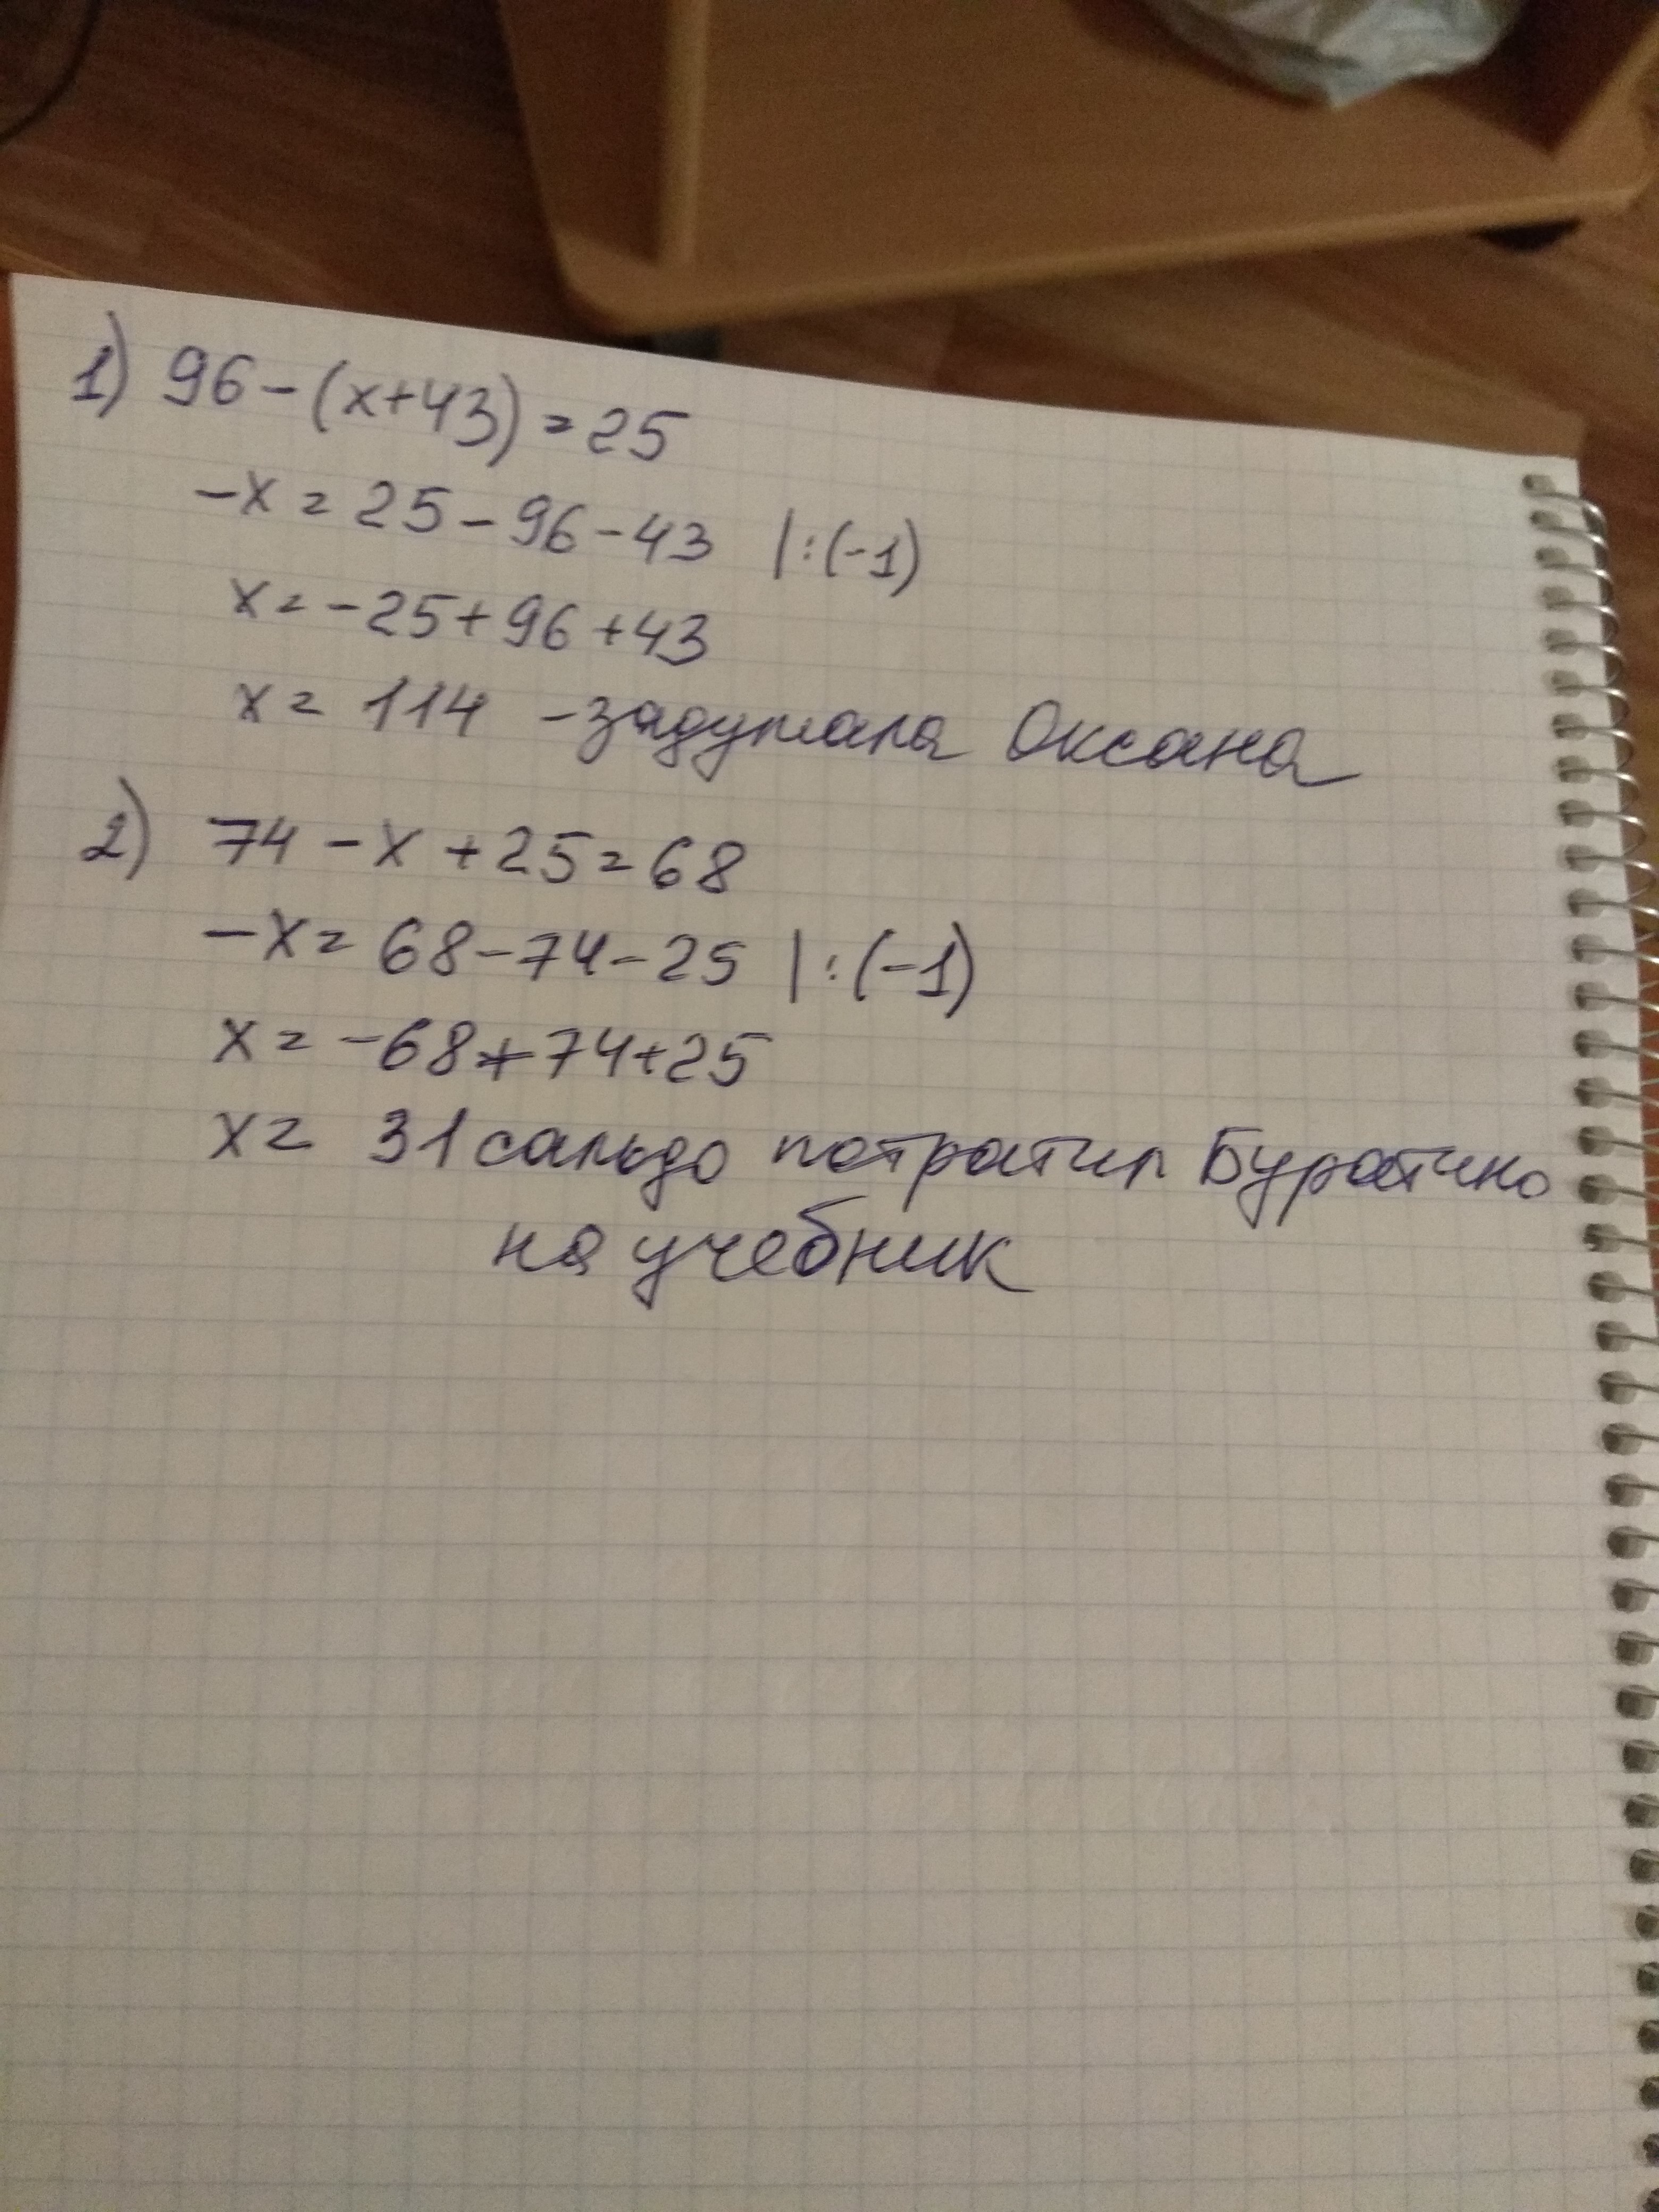 1) 96-(x+43)=25
-x=25-96-43 |:(-1)
x=-25+96+43
x=114 -задумала Оксана
2) 74-x+25=68
-x=68-74-25 |:(-1)
x=-68+74+25
x=31 сальдо потратил Буратино
на учебник